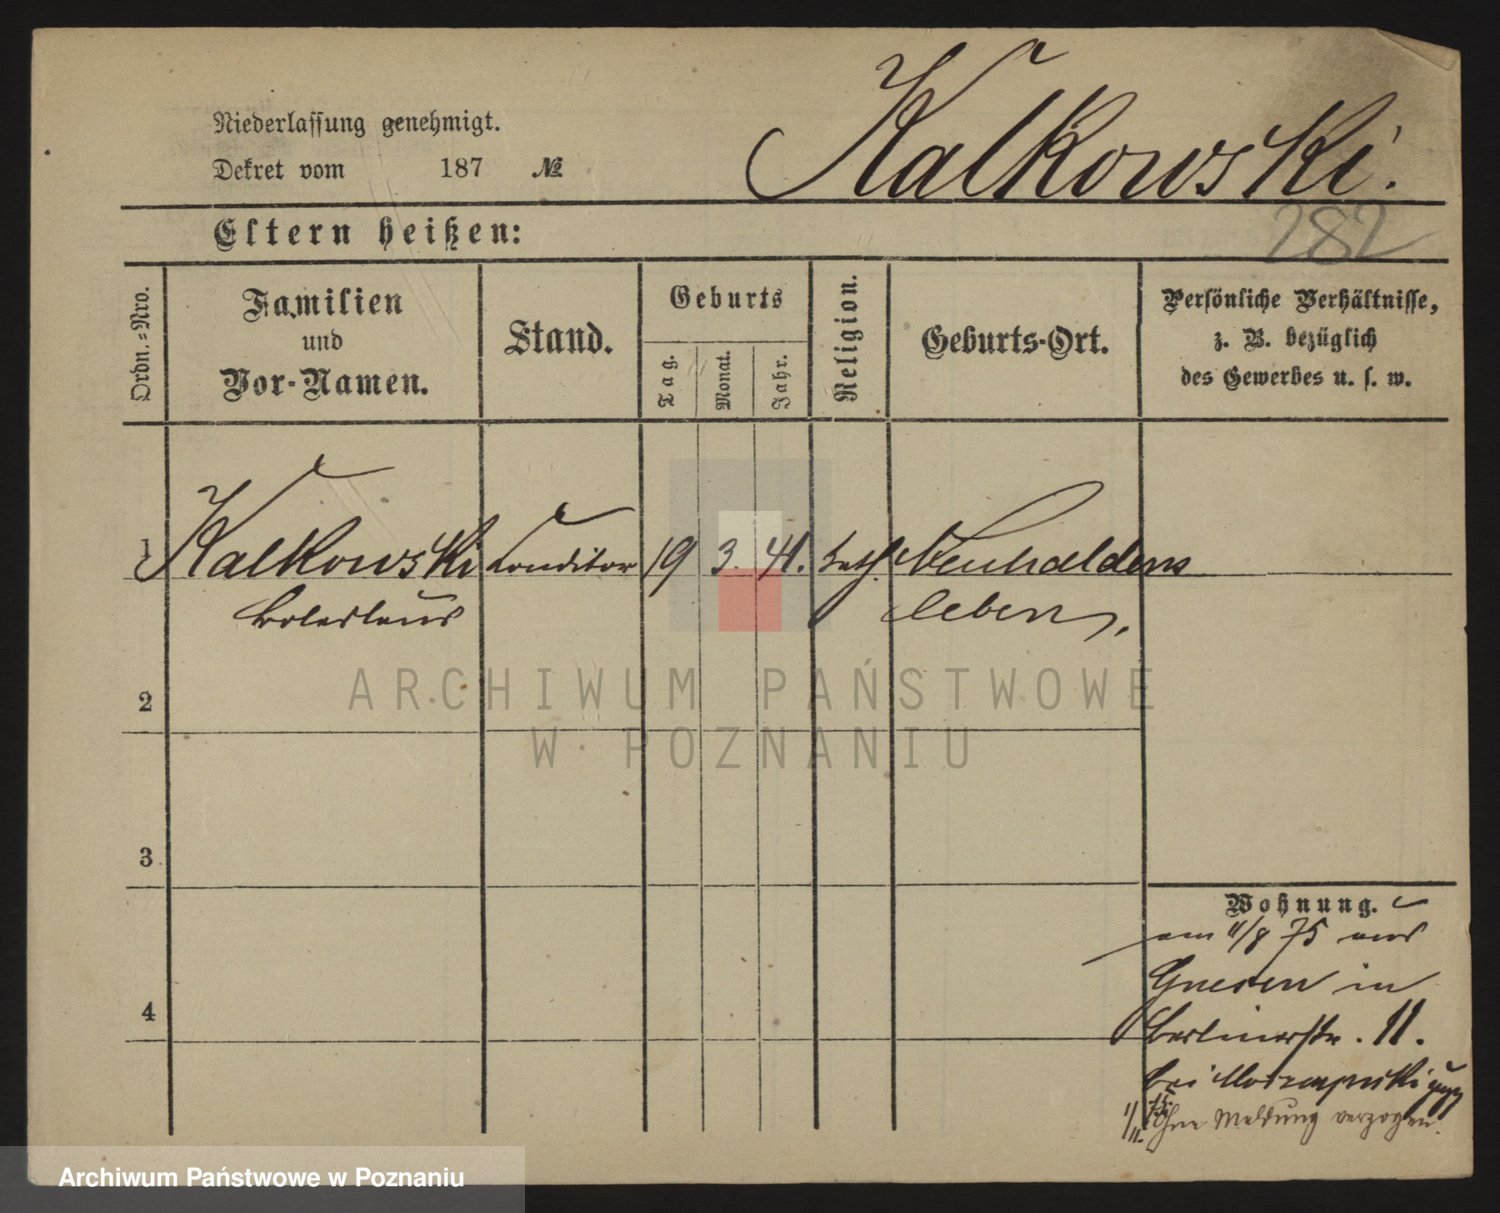 Kalkowski.
Niederlassung genehmigt.
Dekret vom 187 №
Eltern heißen:
282
Ordn.=Nro.
Familien
und
Vor-Namen.
Stand.
Geburts
Tag.
Monat.
Jahr.
Religion.
Geburts-Ort.
Persönliche Verhältnisse,
z. B. bezüglich
des Gewerbes u. s. w.
1 Kalkowski Conditor 19 3. 41. kath. Neuhaldens
Boleslaus leben.
2
3
4
Wohnung.
am 11/8 75 aus
Gnesen in
Berlinerstr. 11.
bei
1/11. 75. Ohne Meldung verzogen.
ARCHIWUM PAŃSTWOWE
W POZNANIU
Archiwum Państwowe w Poznaniu